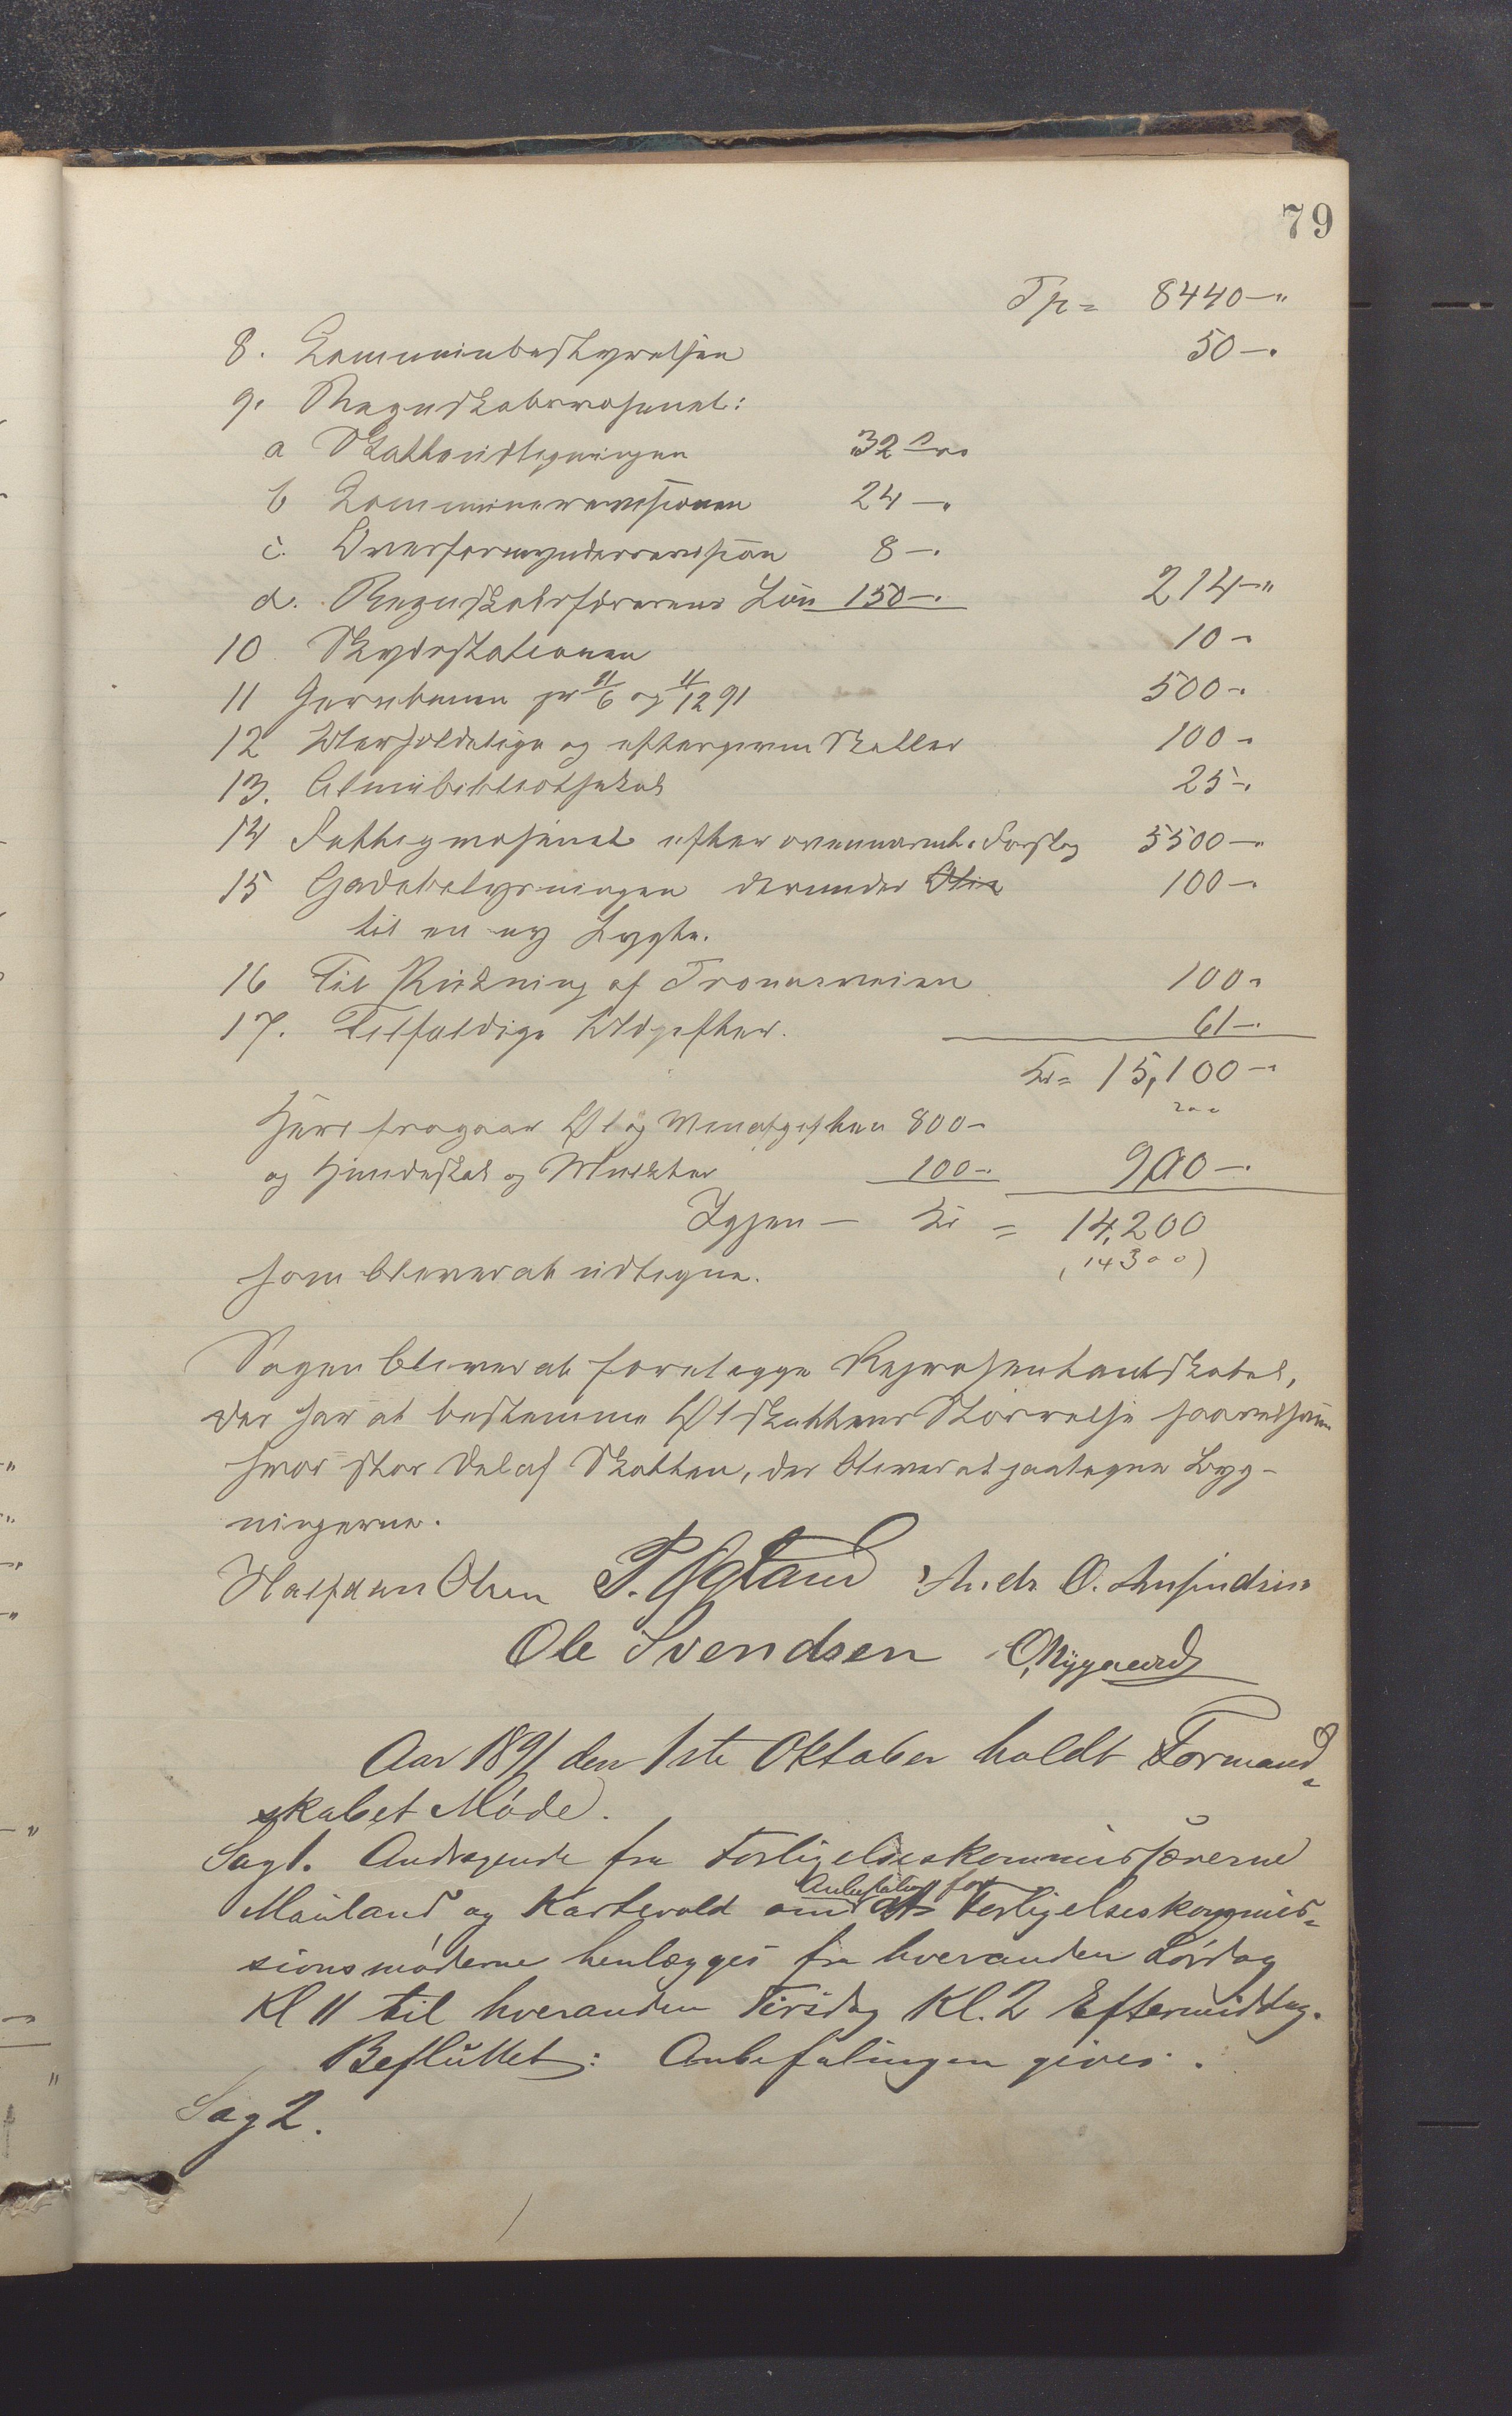 79
Tp = 8440 – "
8. Kommunebestyrelsen 50 – "
9. Regnskabsvæsenet:
a Skatteudligningen 32 –
b Kommunerevisionen 24 – "
c. Overformynderrevision 8 – "
d. Regnskabsførerens Løn 150 – " 214 – "
10 Skydsstationen 10 –
11 Jernbanen pr 11/6 og 11/12 91 500 –
12 Uerholdelige og eftergivne Skatter 100 –
13. Almuebibliotheket 25 –
14 Fattigvæsenet efter ovennævnte Forslag 5500 – "
15 Gadebelysningen derunder 100 – "
til en ny Lygte.
16 Til Pukning af Tronesveien 100 –
17. Tilfældige Udgifter. 61 – "
Kr = 15,100 – "
Heri fragaar Øl og Vinafgiften 800 –
og Hundeskat og Mulkter 100 – 900 – "
Igjen – Kr = 14,200
(14300)
som bliver at udligne.
Sagen bliver at forelægge Repræsentantskabet,
der har at bestemme Ølskattens Størrelse saavelsom
hvor stor Del af Skatten, der bliver at paaligne Byg-
ningerne.
Halfdan Olsen P. Øgland Andr O.
Ole Svendsen O. Nygaard
Aar 1891 den 1ste Oktober holdt Formand-
skabet Møde.
Sag 1. Andragende fra Forligelseskommissærerne
Anbefaling for
Mauland og Kartevold om at Forligelseskommis-
sionsmøderne henlægges fra hveranden Lørdag
Kl 11 til hveranden Tirsdag Kl. 2 Eftermiddag.
Besluttet: Anbefalingen gives.
Sag 2.